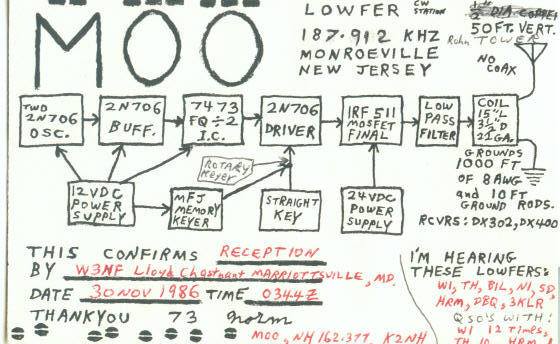 MOO
LOWFER CW STATION
187.912 KHZ
MONROEVILLE
NEW JERSEY
50FT. VERT.
Rohn TOWER
NO COAX
TWO 2N706 OSC.
2N706 BUFF.
7473 FQ ÷ 2 I.C.
2N706 DRIVER
IRF 511 MOSFET FINAL
LOW PASS FILTER
COIL 15"L 3½"D 21GA.
ROTARY KEYER
12VDC POWER SUPPLY
MFJ MEMORY KEYER
STRAIGHT KEY
24VDC POWER SUPPLY
GROUNDS
1000 FT
OF 8AWG
and 10FT
GROUND RODS.
RCVRS: DX302, DX400
THIS CONFIRMS RECEPTION
BY W3NF Lloyd Chastnant MARRIOTTSVILLE, MD.
DATE 30 NOV 1986 TIME 0344Z
THANKYOU 73 norm
MOO, NH 162.377, K2NH
I'M HEARING
THESE LOWFERS:
WI, TH, BIL, NI, SD,
HRM, PBQ, 3KLR
QSO'S WITH:
WI 12 Times,